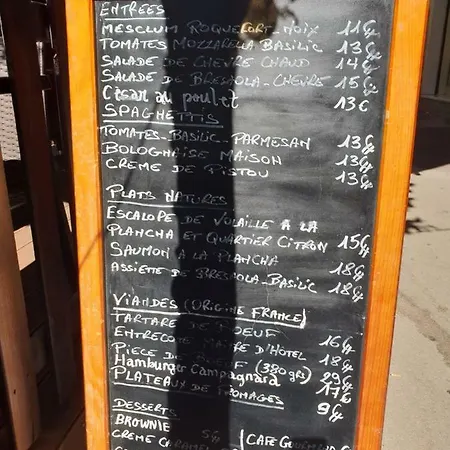 ENTREES
MESCLUM ROQUEFORT-NOIX 11€
TOMATES MOZZARELLA BASILIC 13€
SALADE DE CHEVRE CHAUD 14€
SALADE DE BRESAOLA-CHEVRE 15€
César au poulet 13€
SPAGHETTIS
TOMATES-BASILIC-PARMESAN 13€
BOLOGNAISE MAISON 13€
CREME DE PISTOU 13€
PLATS NATURES
ESCALOPE DE VOLAILLE A LA
PLANCHA ET QUARTIER CITRON 15€
SAUMON A LA PLANCHA 18€
ASSIETE DE BRESAOLA-BASILIC 18€
VIANDES (ORIGINE FRANCE)
TARTARE DE BOEUF 16€
ENTRECOTE MAITRE D'HOTEL 18€
PIECE DE BOEUF (380grs) 22€
Hamburger Campagnard 17€
PLATEAUX DE FROMAGES 9€
DESSERTS
BROWNIE
CREME CARAMEL
CAFE GOURMAND